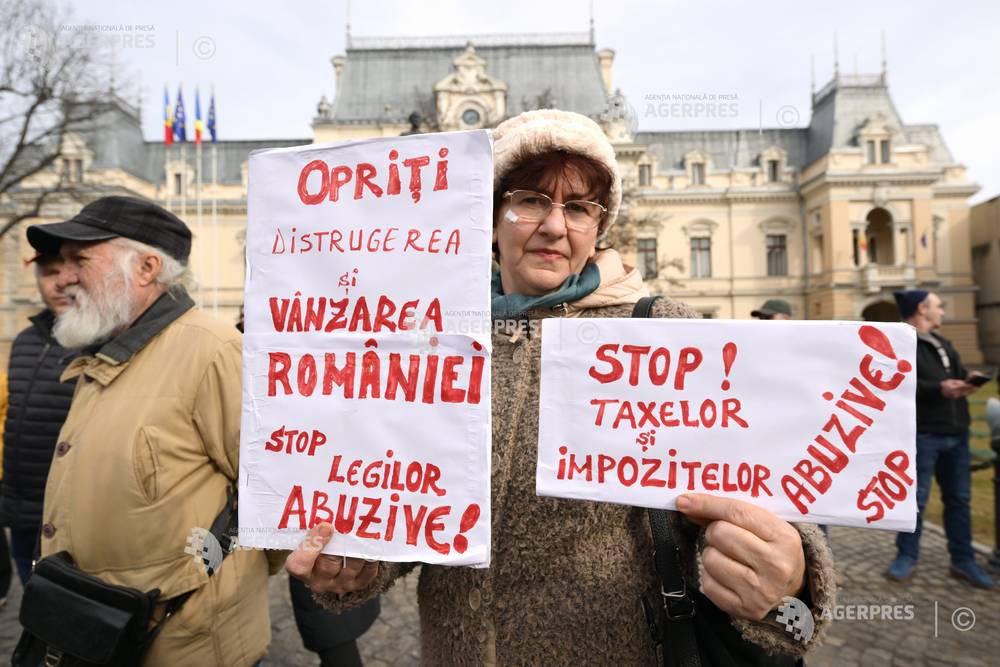 AGENȚIA NAȚIONALĂ DE PRESĂ
AGERPRES
©
AGENȚIA NAȚIONALĂ DE PRESĂ
AGERPRES
©
OPRIȚI
DISTRUGEREA
ȘI
VÂNZAREA
ROMÂNIEI
STOP
LEGILOR
ABUZIVE!
STOP!
TAXELOR
și
IMPOZITELOR
ABUZIVE!
STOP
AGERPRES
©